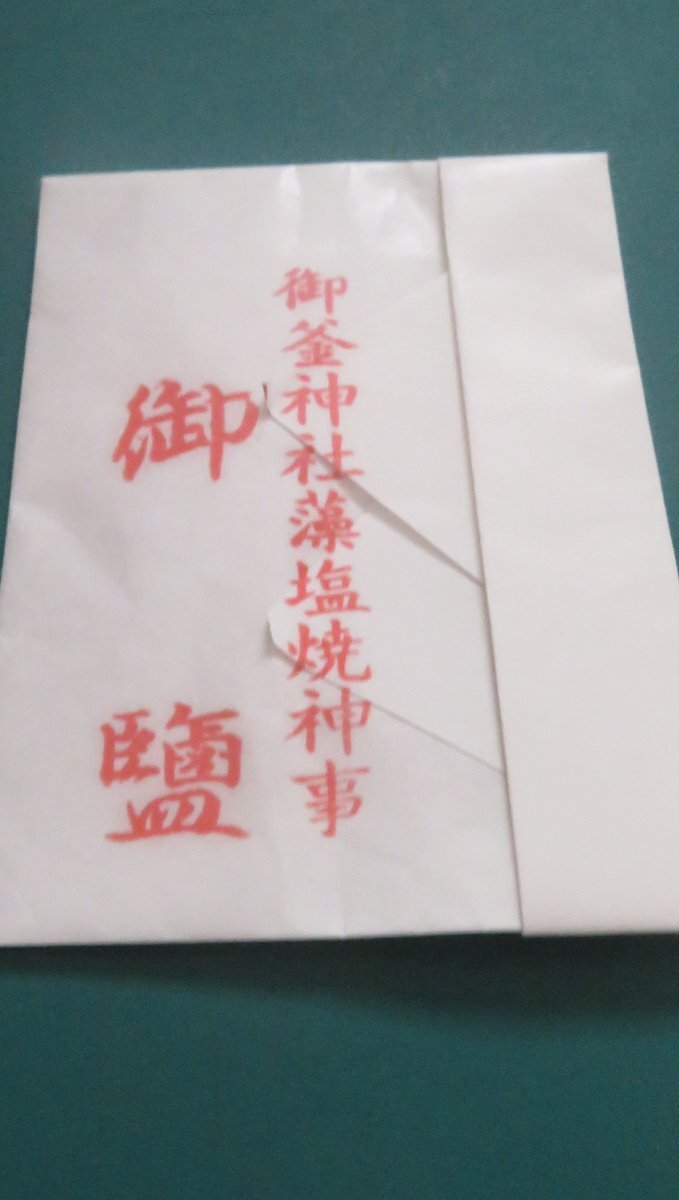 御釜神社藻塩焼神事
御鹽